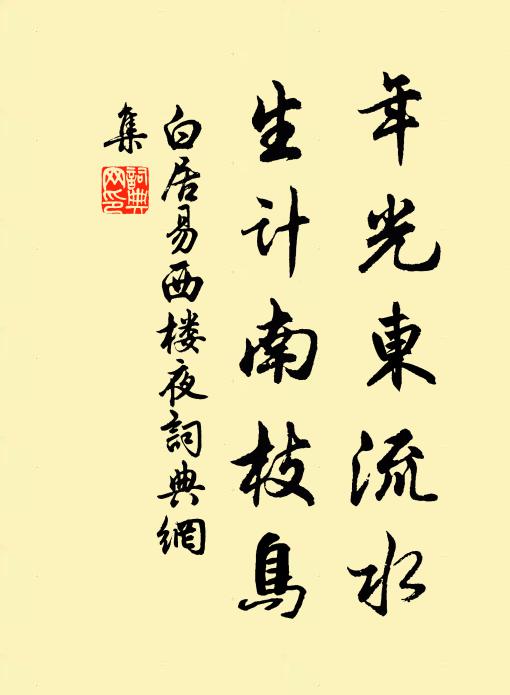 年光東流水
生计南枝鳥
白居易西楼夜詞典網
集
詞典
网印